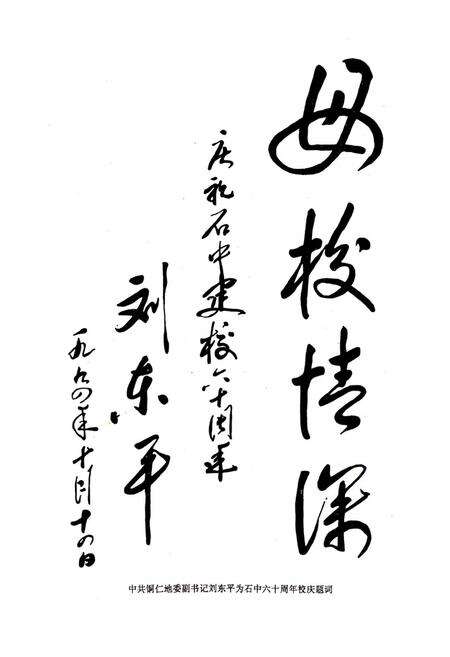 母校情深
庆祝石中建校六十周年
刘东平
一九九四年十月十四日
中共铜仁地委副书记刘东平为石中六十周年校庆题词